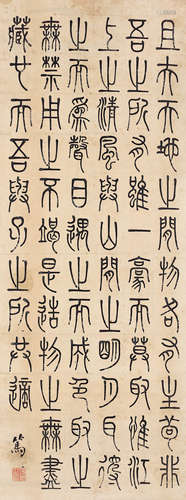 且夫天地之間物各有主苟非
吾之所有雖一豪而莫取惟江
上之清風與山間之明月耳得
之而為聲目遇之而成色取之
無禁用之不竭是造物之無盡
藏也而吾與子之所共適